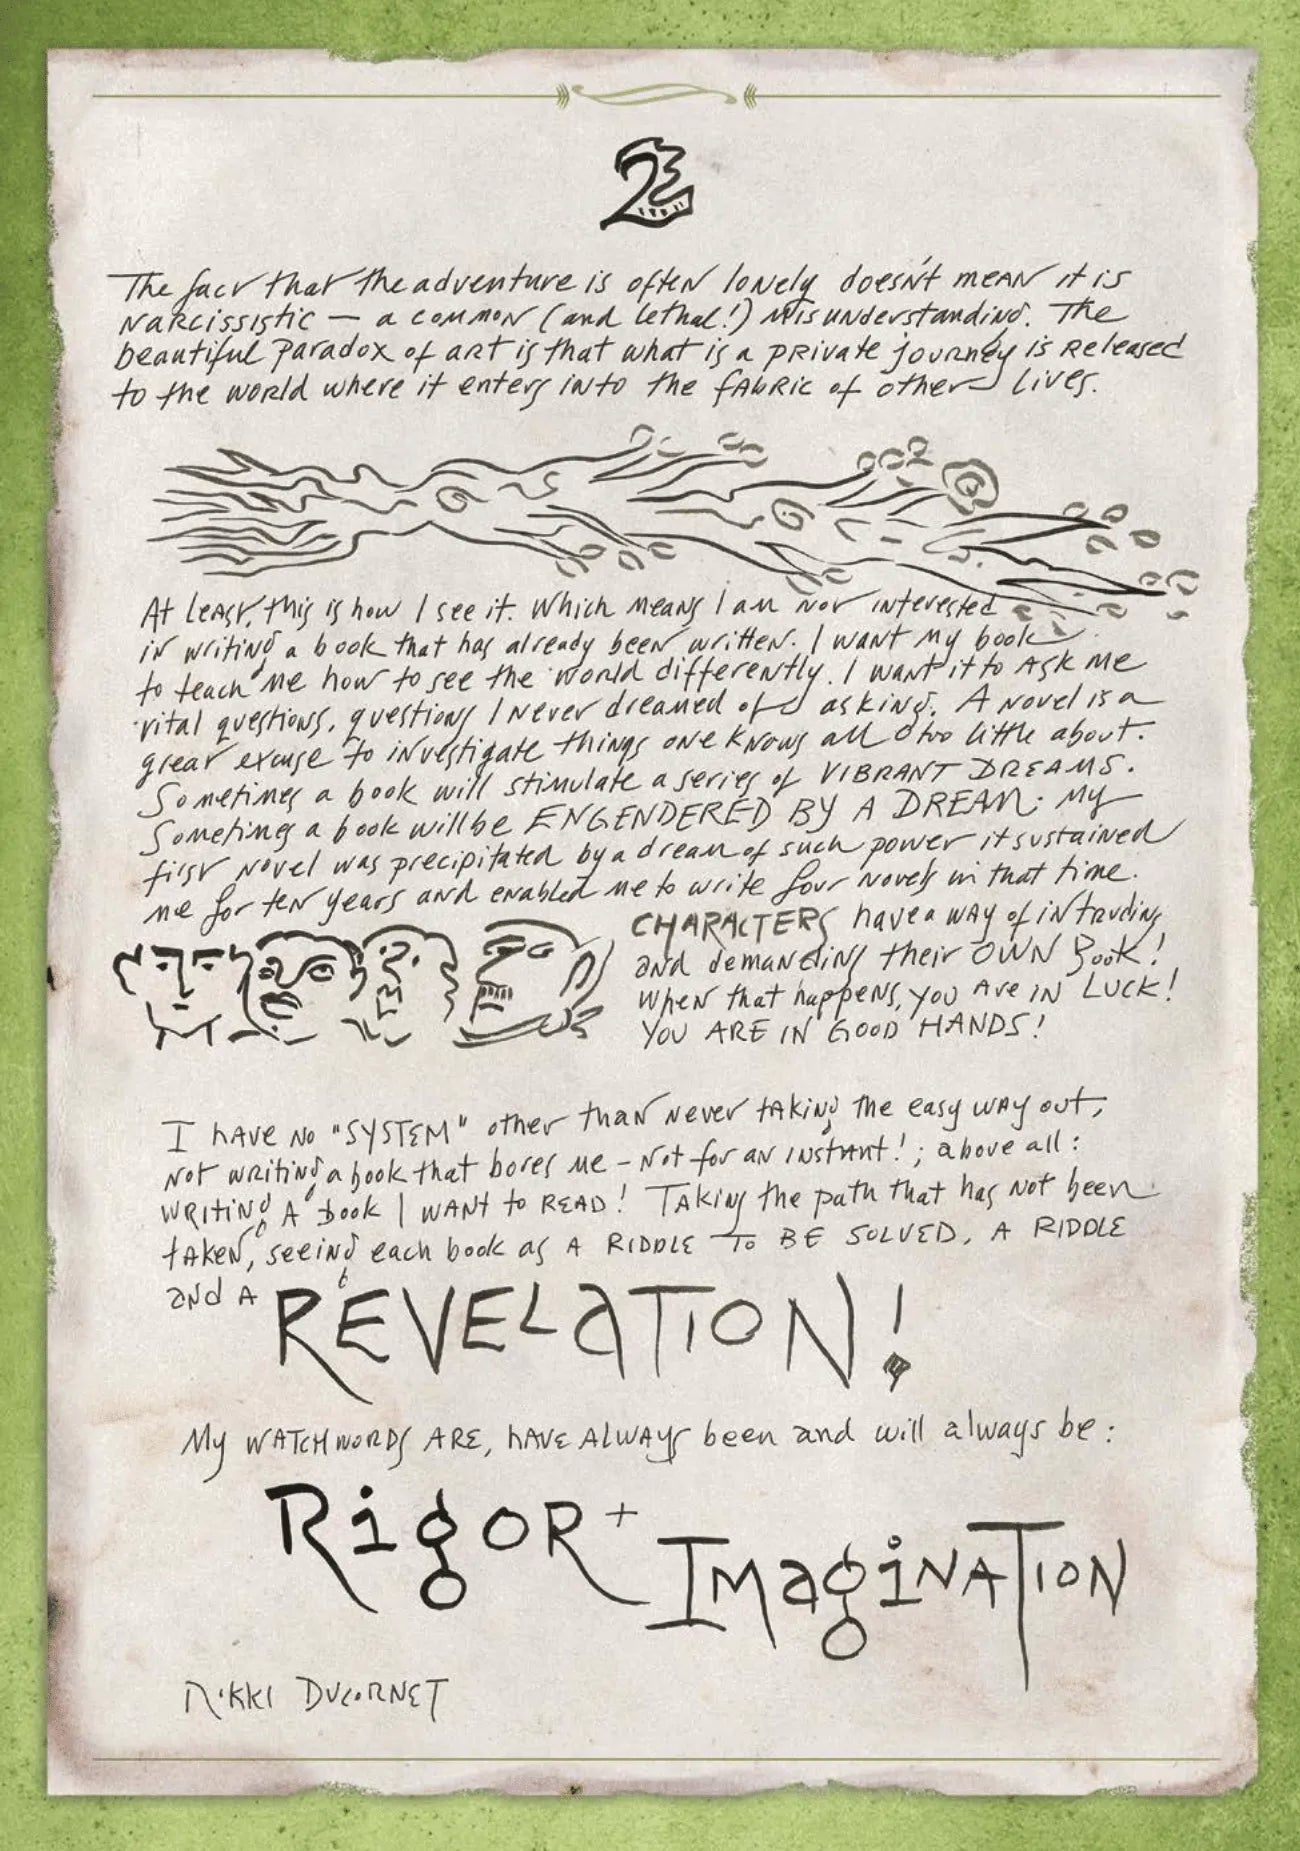 2
The fact that the adventure is often lonely doesn't mean it is
narcissistic — a common (and lethal!) misunderstanding. The
beautiful paradox of art is that what is a private journey is released
to the world where it enters into the fabric of other lives.
At least, this is how I see it. Which means I am not interested
in writing a book that has already been written. I want my book
to teach me how to see the world differently. I want it to ask me
vital questions, questions I never dreamed of asking. A novel is a
great excuse to investigate things one knows all too little about.
Sometimes a book will stimulate a series of VIBRANT DREAMS.
Sometimes a book will be ENGENDERED BY A DREAM. My
first novel was precipitated by a dream of such power it sustained
me for ten years and enabled me to write four novels in that time.
CHARACTERS have a way of intruding
and demanding their OWN Book!
When that happens, you are in LUCK!
YOU ARE IN GOOD HANDS!
I have no "SYSTEM" other than never taking the easy way out,
not writing a book that bores me – not for an instant!; above all:
writing a book I want to READ! Taking the path that has not been
taken, seeing each book as A RIDDLE TO BE SOLVED, A RIDDLE
and a REVELATION!
My watchwords are, have always been and will always be:
Rigor +
Imagination
Rikki Ducornet